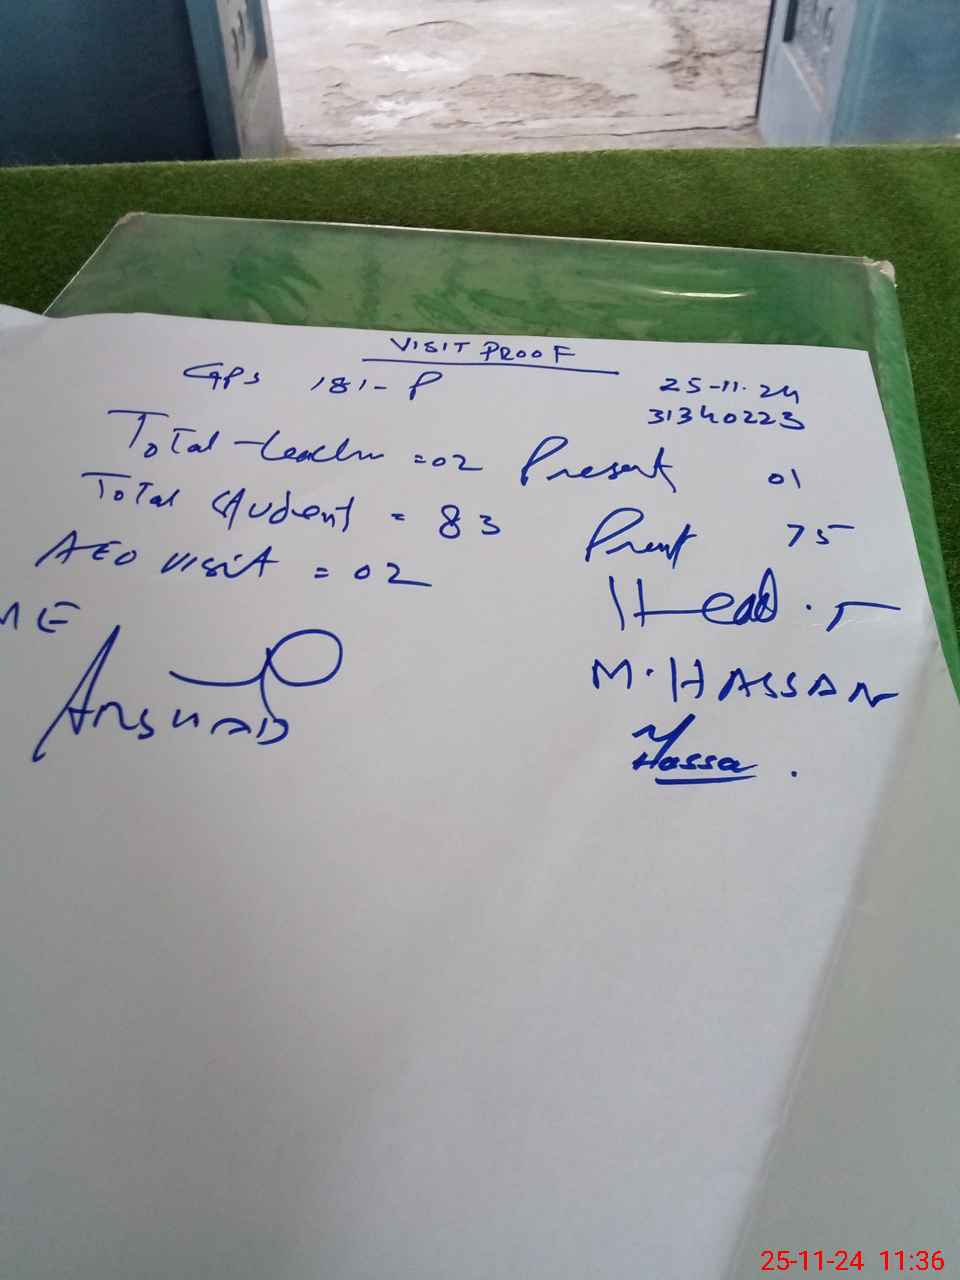 VISIT PROOF
GPS 181-P 25-11-24
31340223
Total teacher = 02 Present 01
Total Student = 83 Prent 75
AEO visit = 02 Head. T
ME M. HASSAN
Arshad Hassa.
25-11-24 11:36